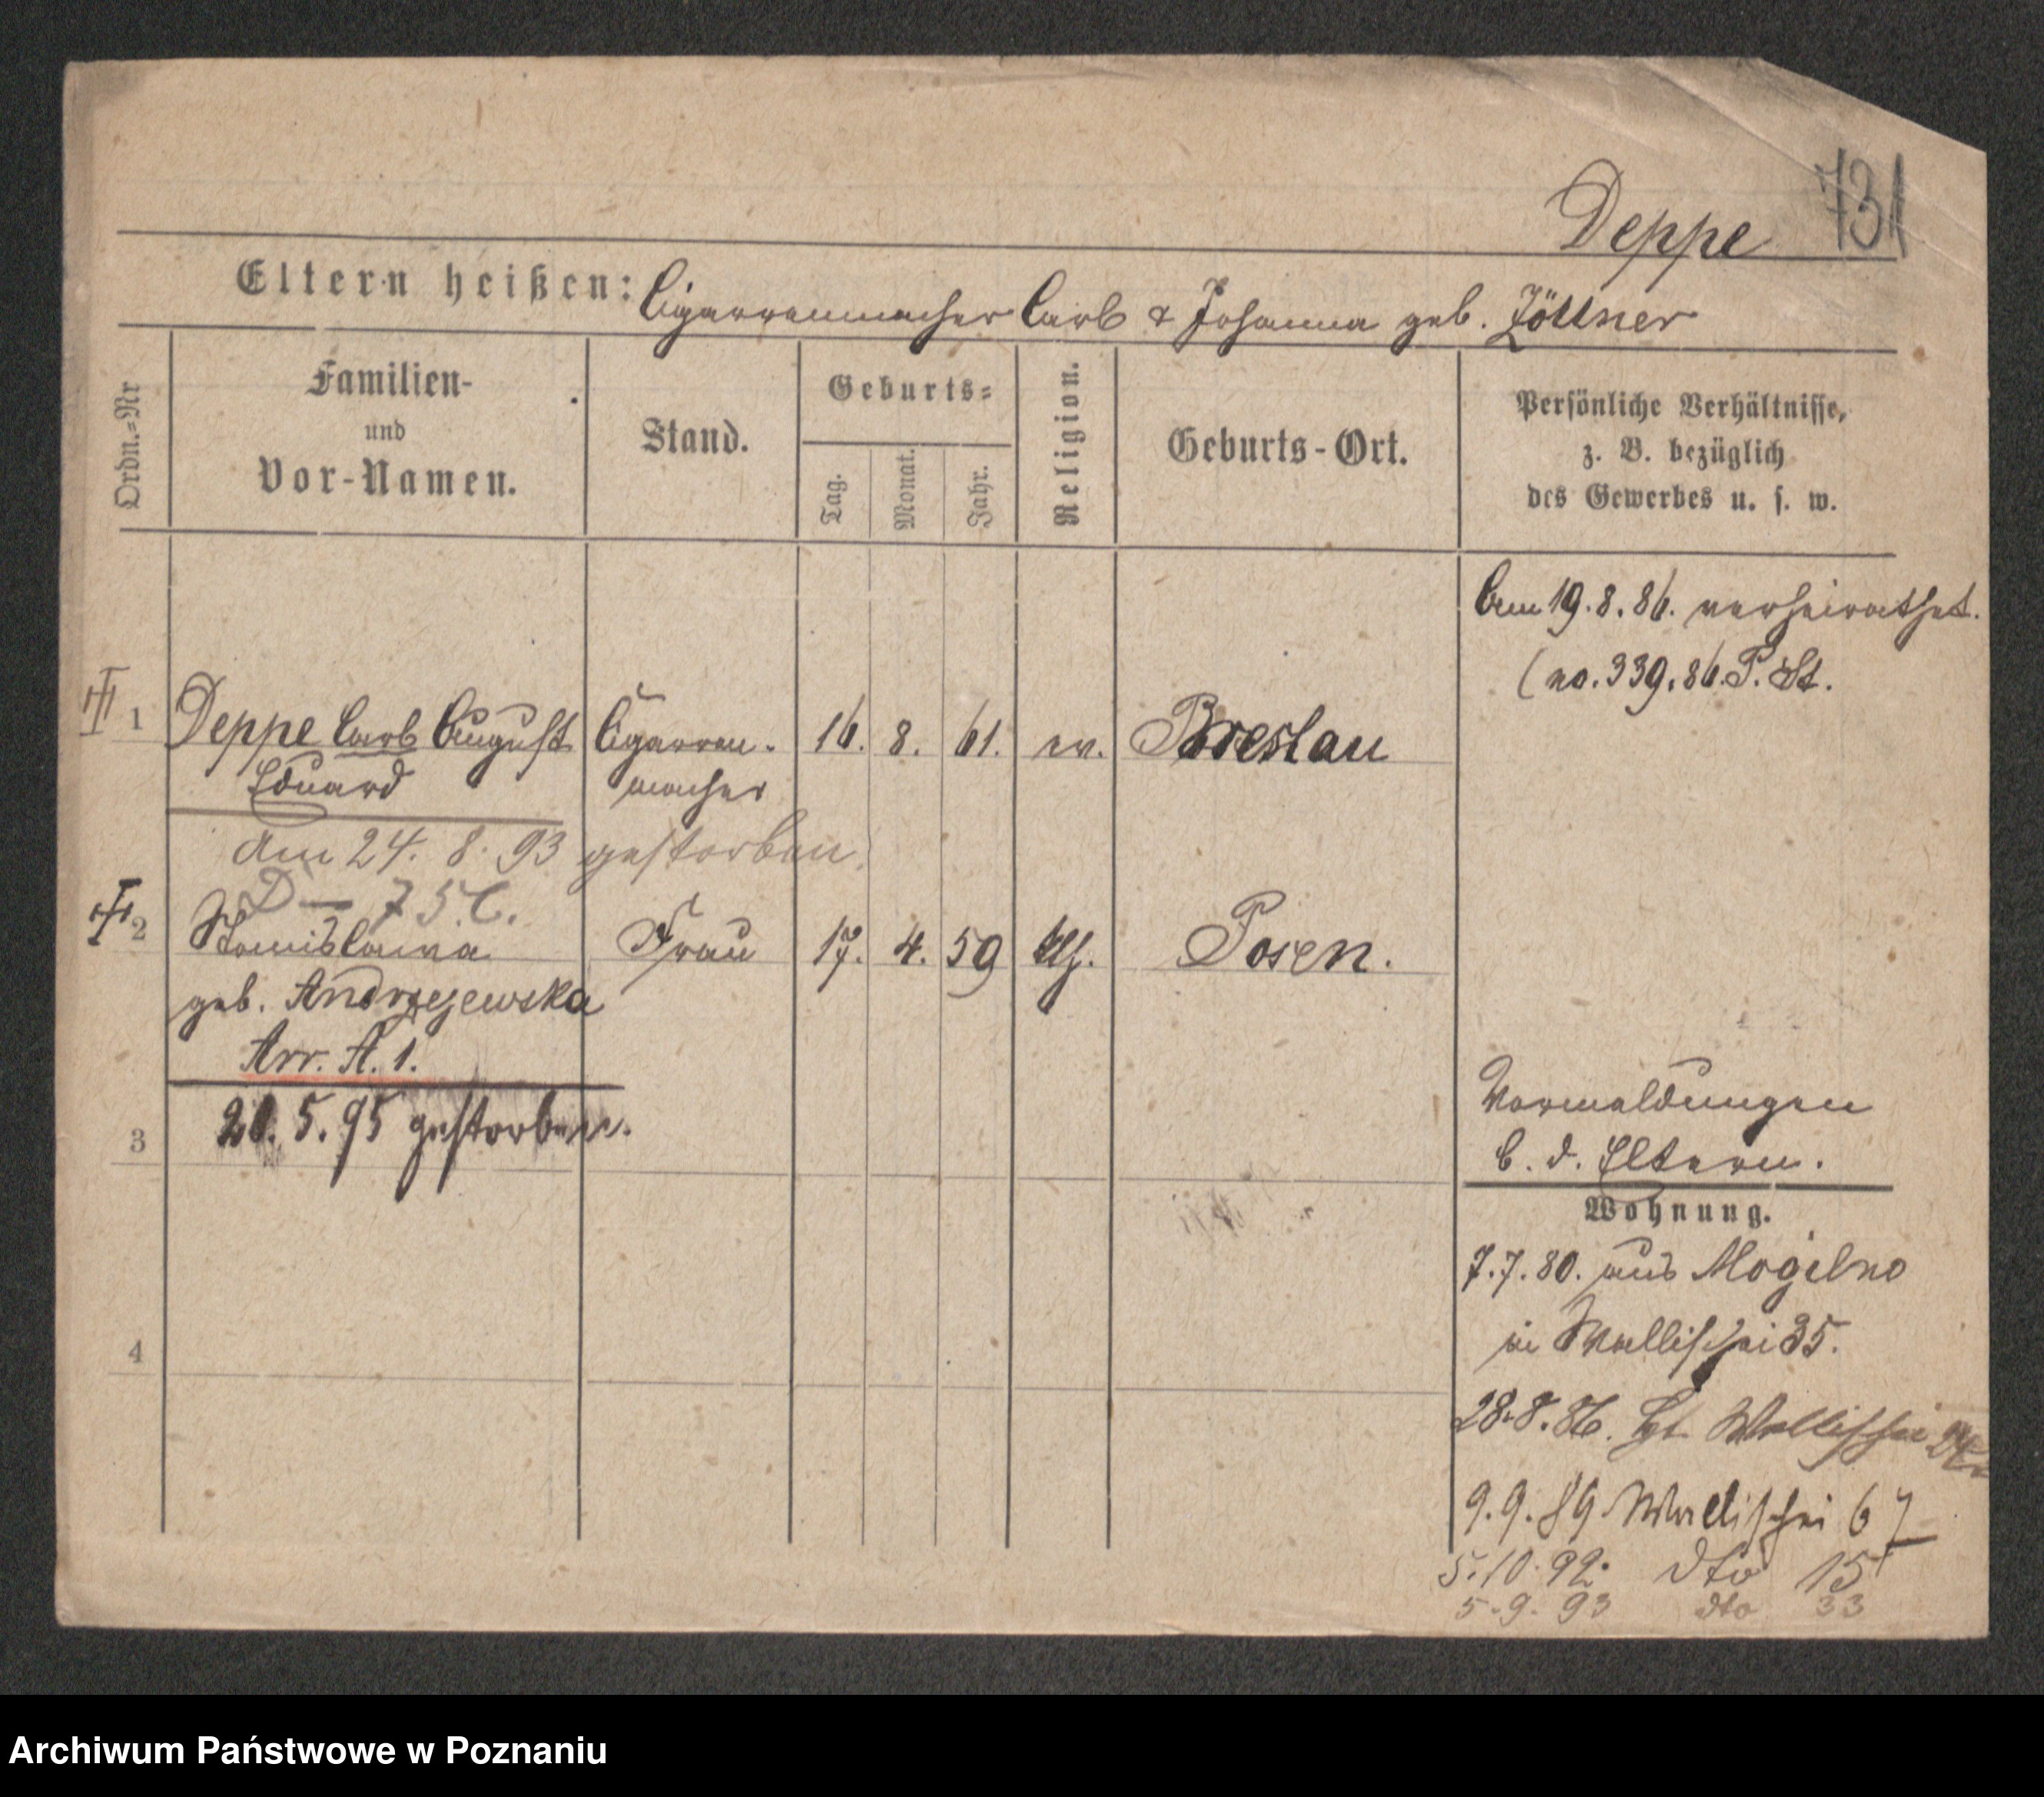 Deppe 731
Eltern heißen: Cigarrenmacher Carl & Johanna geb. Zöllner
Ordn.=Nr
Familien-
und
Vor-Namen.
Stand.
Geburts=
Tag.
Monat.
Jahr.
Religion.
Geburts-Ort.
Persönliche Verhältnisse,
z. B. bezüglich
des Gewerbes u. s. w.
Am 19.8.86. verheirathet.
(no. 339.86. P. St.
1 Deppe Carl August Cigarren- 16. 8. 61. ev. Breslau
Eduard macher
Am 24. 8. 93 gestorben
2 Stanislawa Frau 17. 4. 59 kth. Posen.
geb. Andrzejewska
Arr. A. 1.
3 20. 5. 95 gestorben.
4
Vormeldungen
b. d. Eltern.
Wohnung.
7.7.80. aus Mogilno
in Wallischei 35.
28.8.86. Wallischei
9.9.89 Wallischei 67
5.10.92. dto 15
5.9.93 dto 33
Archiwum Państwowe w Poznaniu